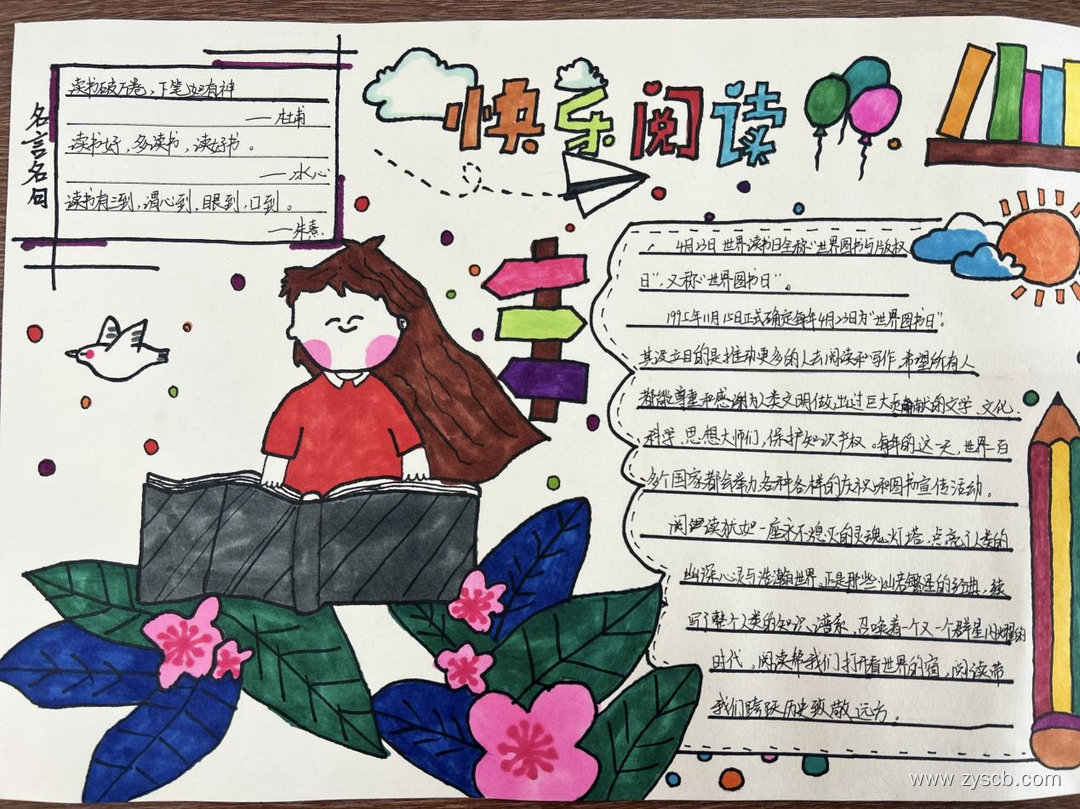 快乐阅读
名言名句
读书破万卷，下笔如有神
—杜甫
读书好，多读书，读好书。
—冰心
读书有三到，谓心到，眼到，口到。
—朱熹
4月23日世界读书日全称"世界图书与版权
日"，又称"世界图书日"。
1995年11月15日正式确定每年4月23日为"世界图书日"。
其设立目的是推动更多的人去阅读和写作，希望所有人
都能尊重和感谢为人类文明做出过巨大贡献的文学、文化、
科学、思想大师们，保护知识产权。每年的这一天，世界一百
多个国家都会举办各种各样的庆祝和图书宣传活动。
阅读就如一座永不熄灭的灵魂灯塔，点亮了人类的
幽深心灵与浩瀚世界，正是那些灿若繁星的经典，续
写了整个人类的知识谱系，召唤着一个又一个群星闪耀的
时代，阅读帮我们打开看世界的窗，阅读带
我们跨跃历史致敬远方。
www.zyscb.com